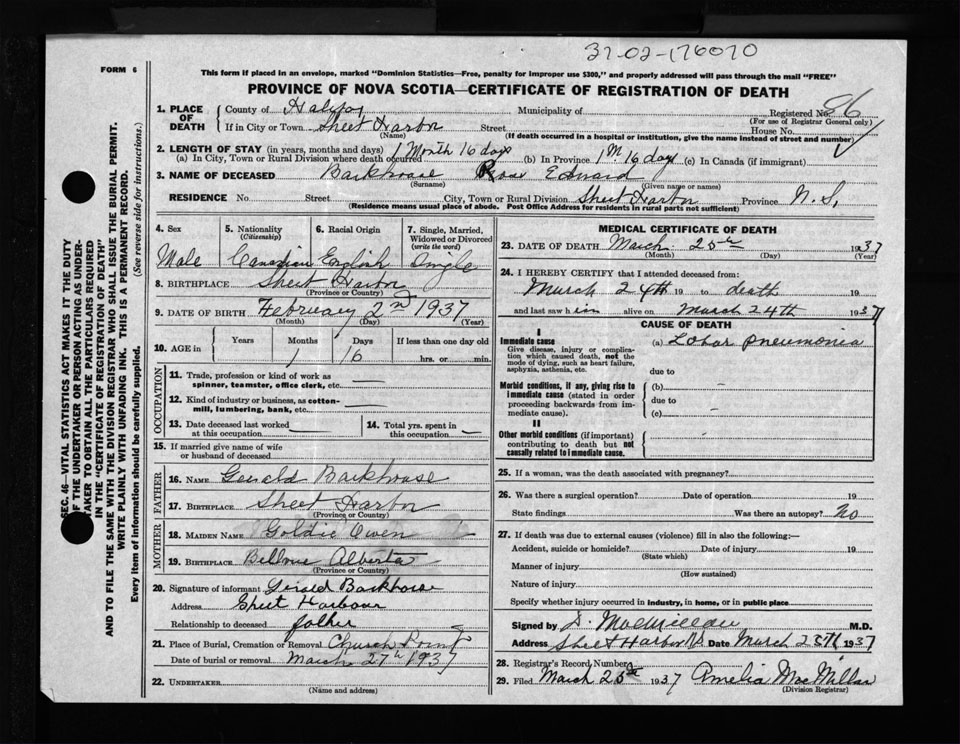 31-02-176070
FORM 6
This form if placed in an envelope, marked "Dominion Statistics—Free, penalty for improper use $300," and properly addressed will pass through the mail "FREE"
PROVINCE OF NOVA SCOTIA—CERTIFICATE OF REGISTRATION OF DEATH
1. PLACE OF DEATH
County of Halifax Municipality of Registered No. 86
(For use of Registrar General only)
If in City or Town Sheet Harbor Street House No.
(Name) (If death occurred in a hospital or institution, give the name instead of street and number)
2. LENGTH OF STAY (in years, months and days)
(a) In City, Town or Rural Division where death occurred 1 Month 16 days (b) In Province 1 M 16 days (c) In Canada (if immigrant)
3. NAME OF DECEASED Backhouse Ross Edward
(Surname) (Given name or names)
RESIDENCE No. Street City, Town or Rural Division Sheet Harbor Province N.S.
(Residence means usual place of abode. Post Office Address for residents in rural parts not sufficient)
4. Sex Male
5. Nationality (Citizenship) Canadian
6. Racial Origin English
7. Single, Married, Widowed or Divorced (write the word) Single
8. BIRTHPLACE Sheet Harbor
(Province or Country)
9. DATE OF BIRTH February 2nd 1937
(Month) (Day) (Year)
10. AGE in Years Months Days If less than one day old
1 16 hrs. or min.
OCCUPATION
11. Trade, profession or kind of work as spinner, teamster, office clerk, etc.
12. Kind of industry or business, as cotton-mill, lumbering, bank, etc.
13. Date deceased last worked at this occupation
14. Total yrs. spent in this occupation
15. If married give name of wife or husband of deceased
FATHER
16. NAME Gerald Backhouse
17. BIRTHPLACE Sheet Harbor
(Province or Country)
MOTHER
18. MAIDEN NAME Goldie Owen
19. BIRTHPLACE Bellvue Alberta
(Province or Country)
20. Signature of informant Gerald Backhouse
Address Sheet Harbour
Relationship to deceased father
21. Place of Burial, Cremation or Removal Church Point
Date of burial or removal March 27th 1937
22. UNDERTAKER
(Name and address)
MEDICAL CERTIFICATE OF DEATH
23. DATE OF DEATH March 25th 1937
(Month) (Day) (Year)
24. I HEREBY CERTIFY that I attended deceased from:
March 24th 19 to death 19
and last saw him alive on March 24th 1937
CAUSE OF DEATH
I
Immediate cause
Give disease, injury or complication which caused death, not the mode of dying, such as heart failure, asphyxia, asthenia, etc.
(a) Lobar pneumonia
due to
Morbid conditions, if any, giving rise to immediate cause (stated in order proceeding backwards from immediate cause).
(b)
due to
(c)
II
Other morbid conditions (if important) contributing to death but not causally related to immediate cause.
25. If a woman, was the death associated with pregnancy?
26. Was there a surgical operation? Date of operation 19
State findings Was there an autopsy? No
27. If death was due to external causes (violence) fill in also the following:—
Accident, suicide or homicide? Date of injury 19
(State which)
Manner of injury
(How sustained)
Nature of injury
Specify whether injury occurred in industry, in home, or in public place
Signed by D. MacMillan M.D.
Address Sheet Harbor NS Date March 25th 1937
28. Registrar's Record Number
29. Filed March 25th 1937 Amelia MacMillan
(Division Registrar)
SEC. 46—VITAL STATISTICS ACT MAKES IT THE DUTY
OF THE UNDERTAKER OR PERSON ACTING AS UNDER-
TAKER TO OBTAIN ALL THE PARTICULARS REQUIRED
IN THE "CERTIFICATE OF REGISTRATION OF DEATH"
AND TO FILE THE SAME WITH THE DIVISION REGISTRAR WHO SHALL ISSUE THE BURIAL PERMIT.
WRITE PLAINLY WITH UNFADING INK. THIS IS A PERMANENT RECORD.
Every item of information should be carefully supplied. (See reverse side for instructions.)